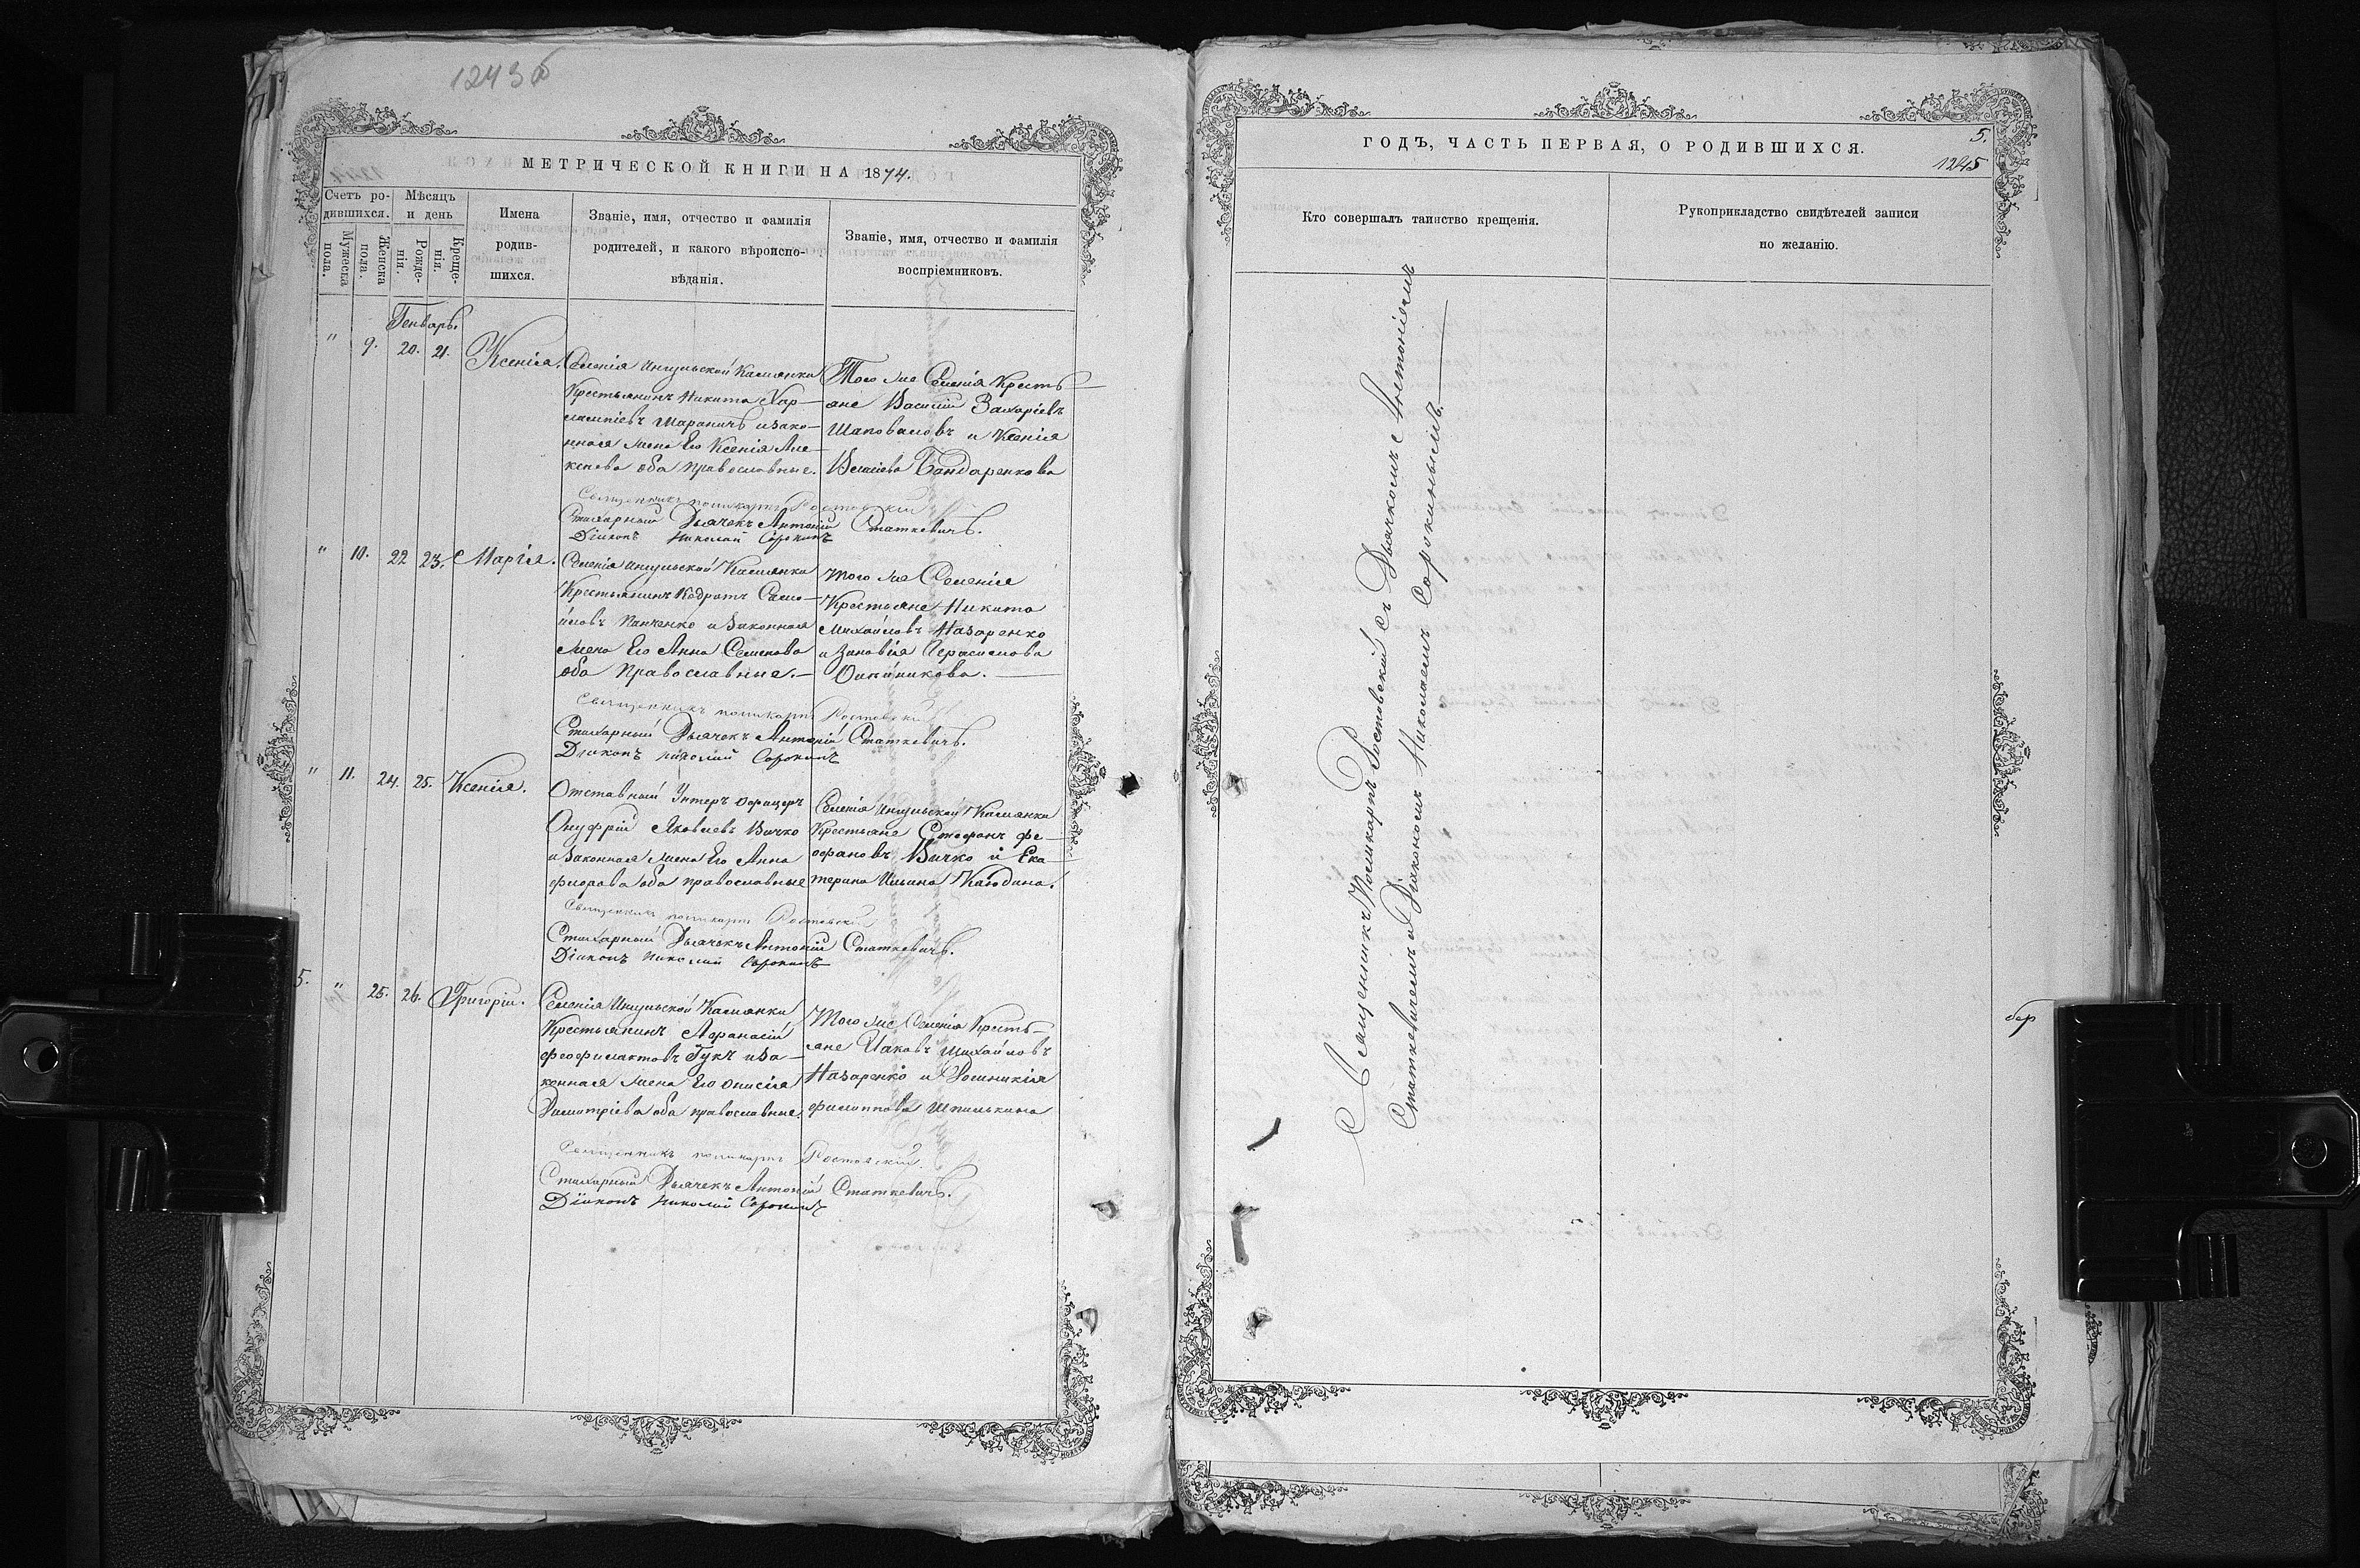 1243б
МЕТРИЧЕСКОЙ КНИГИ НА 1874.
Счетъ ро-
дившихся.
Мужеска
пола.
Женска
пола.
Мѣсяцъ
и день
Рожде-
нія.
Креще-
нія.
Имена
родив-
шихся.
Званіе, имя, отчество и фамилія
родителей, и какого вѣроиспо-
вѣданія.
Званіе, имя, отчество и фамилія
воспріемниковъ.
Генварь.
" 9. 20. 21. Ксенія.
Селенія Ингульской Камянки
Крестьянинъ Никита Хар-
лампіевъ и зако-
нная жена Его Ксенія Але-
ксѣева оба православные.
Того же Селенія Кресть-
яне Василій Захаріевъ
Шаповаловъ и Ксенія
Власіева Бондаренкова
Священникъ Поликарпъ Ростовскій
Стихарный Дьячекъ Антоній Статкевичъ.
Діаконъ Николай Сорокинъ
" 10. 22 23. Марія.
Селенія Ингульской Камянки
Крестьянинъ Кодратъ Само-
йловъ Панченко и законная
жена Его Анна Семенова
оба Православные.
того же Селенія
Крестьяне Никита
Михайловъ Назаренко
и Зиновія Герасимова
Священникъ Поликарпъ Ростовскій
Стихарный Дьячекъ Антоній Статкевичъ.
Діаконъ Николай Сорокинъ
" 11. 24. 25. Ксенія.
Отставный Унтеръ офицеръ
Онуфрій Яковлевъ Вичко
и законная жена Его Анна
фиорова оба православные
Селенія Ингульской Камянки
Крестьяне Стефанъ фе-
офановъ Вичко и Ека-
терина Ильина
Священникъ Поликарпъ Ростовскій
Стихарный Дьячекъ Антоній Статкевичъ.
Діаконъ Николай Сорокинъ
5. " 25. 26. Григорій.
Селенія Ингульской Камянки
Крестьянинъ Афанасій
феофилактовъ Гукъ и за-
конная жена Его Онисія
Димитріева оба православные.
Того же Селенія Кресть-
яне Іаковъ Михайловъ
Назаренко и Домникія
филиппова Шпилькина
Священникъ Поликарпъ Ростовскій.
Стихарный Дьячекъ Антоній Статкевичъ.
Діаконъ Николай Сорокинъ
ГОДЪ, ЧАСТЬ ПЕРВАЯ, О РОДИВШИХСЯ.
5.
1245
Кто совершалъ таинство крещенія.
Рукоприкладство свидѣтелей записи
по желанію.
Священникъ Поликарпъ Ростовскій съ Дьячкомъ Антоніемъ
Статкевичемъ и Діакономъ Николаемъ Сорокинымъ.